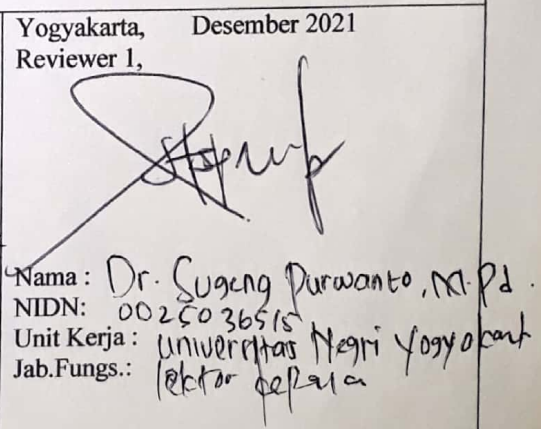 Yogyakarta, Desember 2021
Reviewer 1,
Nama : Dr. Sugeng Purwanto, M.Pd.
NIDN: 0025036515
Unit Kerja : Universitas Negri Yogyakart
Jab.Fungs.: lektor kepala